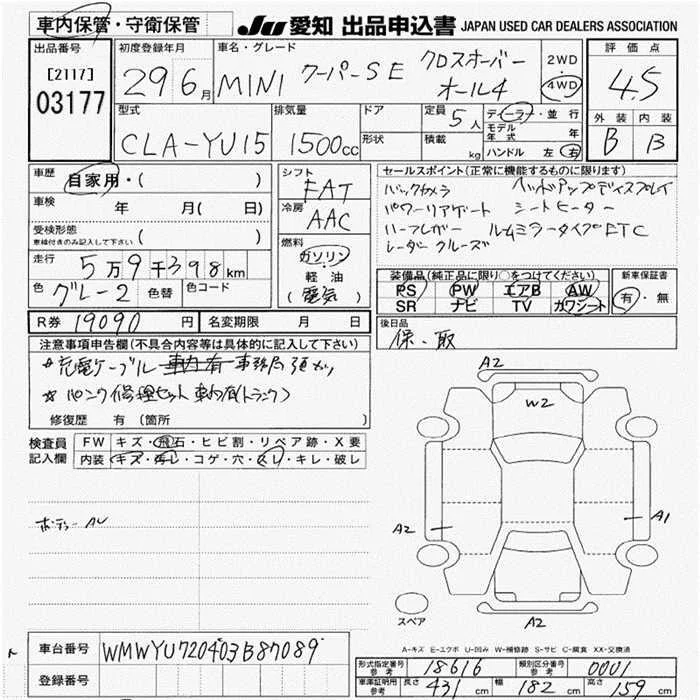 車内保管・守衛保管
JU 愛知 出品申込書 JAPAN USED CAR DEALERS ASSOCIATION
出品番号 初度登録年月 車名・グレード 2WD ・ 4WD 評価点
[2117]
03177
29 6月 MINI クーパーSE クロスオーバー オール4
4.5
型式 排気量 ドア 定員 5人 ディーラー・並行 外装 内装
CLA-YU15 1500cc 形状 積載 kg モデル年式 年 B B
ハンドル 左 右
車歴 自家用・( ) シフト FAT セールスポイント(正常に機能するものに限ります)
車検 年 月( 日) 冷房 AAC バックカメラ ヘッドアップディスプレイ
受検形態 パワーリアゲート シートヒーター
車検付きのみ記入して下さい 燃料 ハーフレザー ルームミラータイプETC
走行 5万9千398km ガソリン・軽油 レーダークルーズ
色 グレー2 色替 色コード (電気)
装備品(純正品に限り○をつけてください) 新車保証書
PS PW エアB AW 有・無
SR ナビ TV カワシート
R券 19090円 名変期限 月 日 後日品
保、取
注意事項申告欄(不具合内容等は具体的に記入して下さい)
*充電ケーブル 車内有 事務局預かり
*パンク修理セット車内有(トランク)
修復歴 有(箇所
検査員記入欄 FW キズ・飛石・ヒビ割・リペア跡・X要
内装 キズ・汚レ・コゲ・穴・スレ・キレ・破レ
A2
W2
ボディー AU
A2 A1
スペア A2
A-キズ E-エクボ U-凹み W-補修跡 S-サビ C-腐食 XX-交換済
車台番号 WMWYU720403B87089
登録番号
形式指定番号 参考 18616 類別区分番号 参考 0001
車庫証明用 参考 長さ 431cm 幅 182cm 高さ 159cm